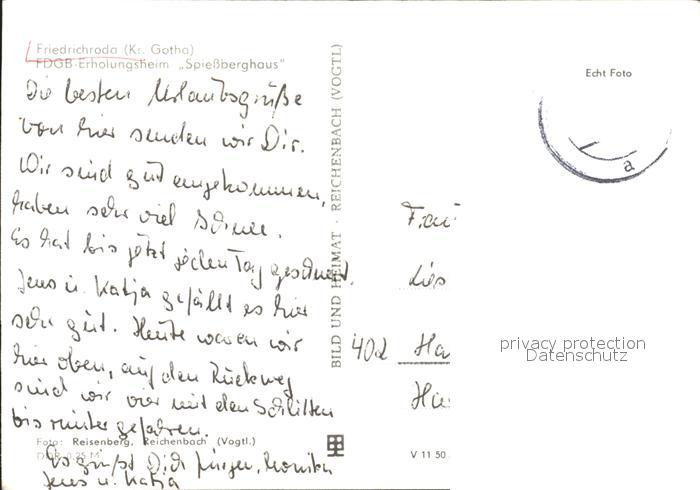 Friedrichroda (Kr. Gotha)
FDGB-Erholungsheim „Spießberghaus"
Echt Foto
Die besten Urlaubsgrüße
von hier senden wir Dir.
Wir sind gut angekommen,
haben sehr viel Schnee.
Es hat bis jetzt jeden Tag geschneit.
Jens u. Katja gefällt es hier
sehr gut. Heute waren wir
hier oben, auf den Rückweg
sind wir vier mit den Schlitten
bis runter gefahren.
Es grüßt Dich Jürgen, Monika
Jens u. Katja
Foto: Reisenberg, Reichenbach (Vogtl.)
BILD UND HEIMAT · REICHENBACH (VOGTL)
a
Frau
Lies
402 Ha
V 11 50
privacy protection
Datenschutz